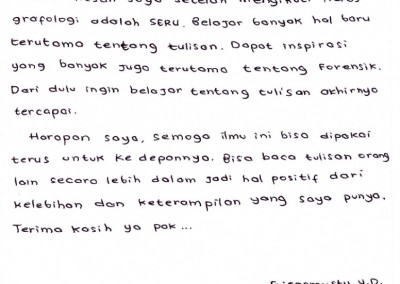 saya setelah mengikuti
grafologi adalah SERU. Belajar banyak hal baru
terutama tentang tulisan. Dapat inspirasi
yang banyak juga terutama tentang Forensik.
Dari dulu ingin belajar tentang tulisan akhirnya
tercapai.
Harapan saya, semoga ilmu ini bisa dipakai
terus untuk ke depannya. Bisa baca tulisan orang
lain secara lebih dalam jadi hal positif dari
kelebihan dan keterampilan yang saya punya.
Terima kasih ya pak...